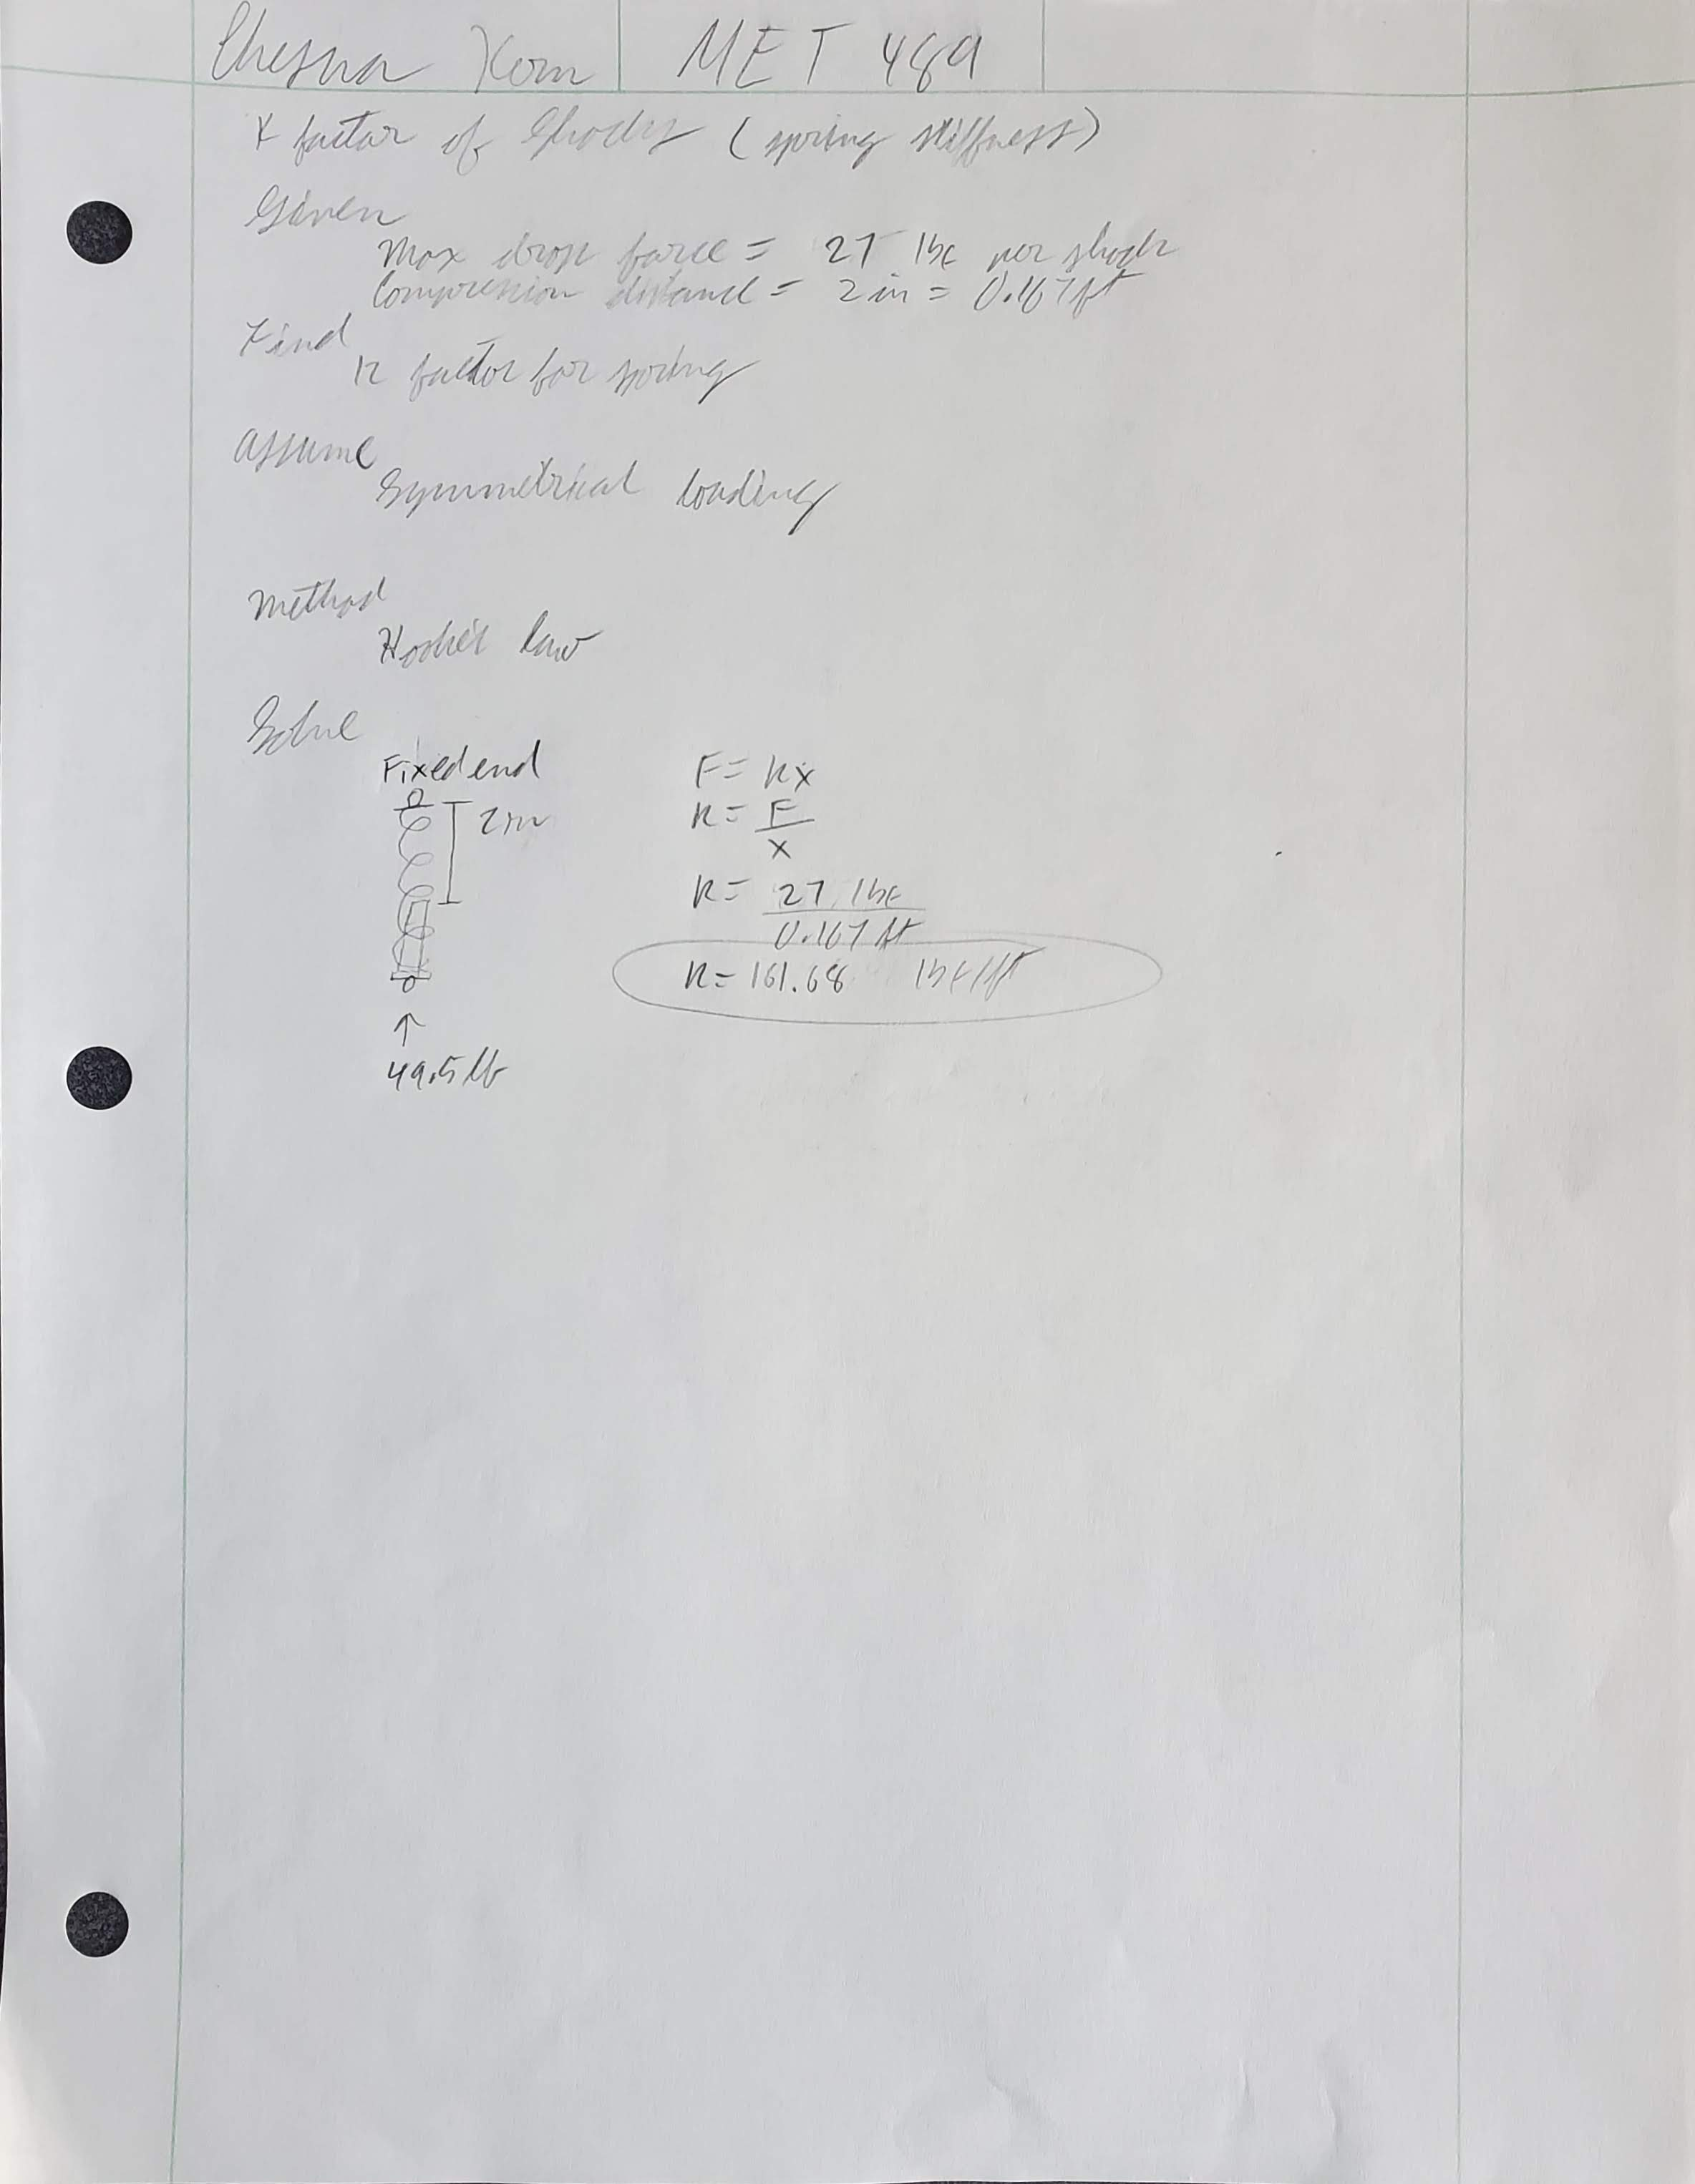 Chesna Kern MET 489
K factor of Shocks (spring stiffness)
Given
Max drop force = 27 lbf per shock
Compression distance = 2 in = 0.167 ft
Find
K factor for spring
Assume
Symmetrical loading
Method
Hooke's law
Solve
Fixed end
2 in
49.5 lb
F = Kx
K = F
x
K = 27 lbf
0.167 ft
K = 161.68 lbf/ft